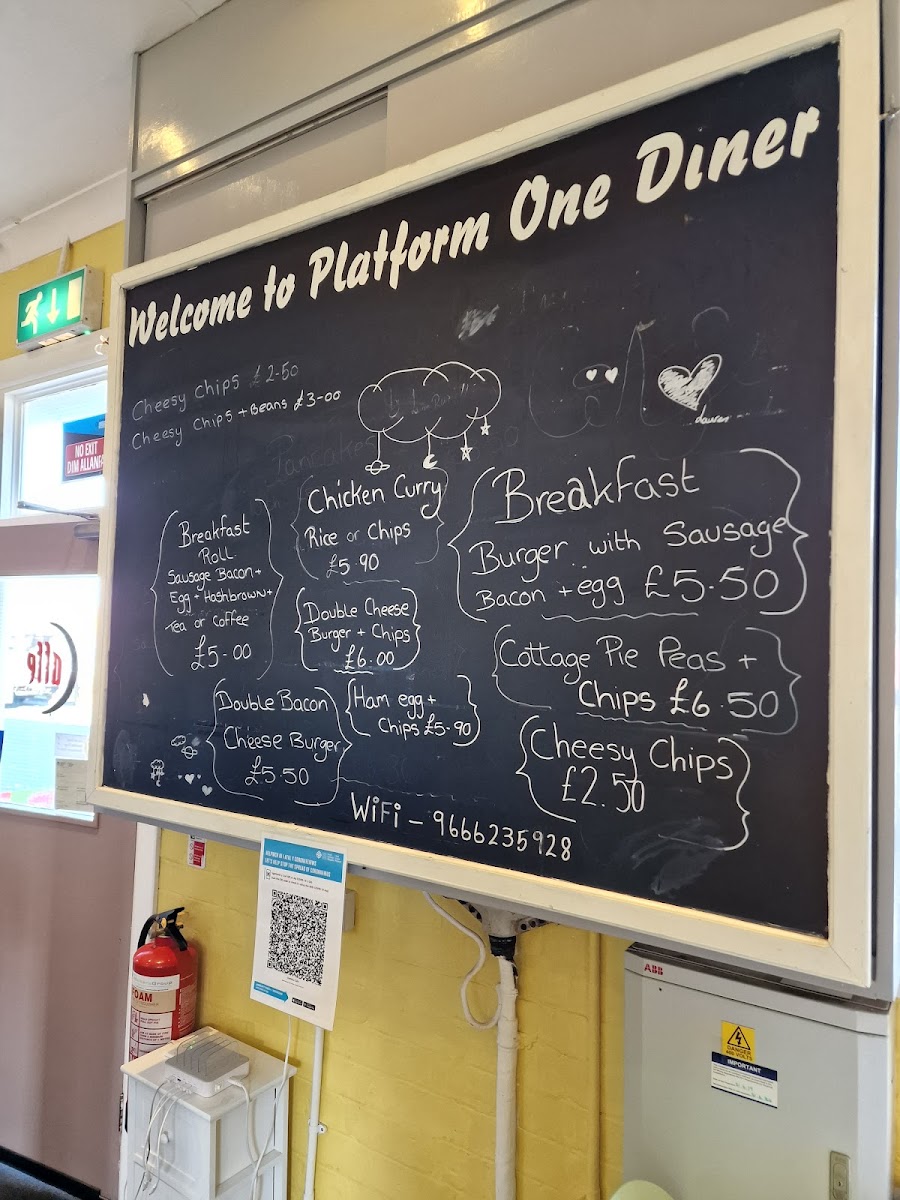 Welcome to Platform One Diner
Cheesy Chips £2-50
Cheesy Chips + Beans £3-00
Pancakes
Breakfast
Roll
Sausage Bacon +
Egg + Hashbrown +
Tea or Coffee
£5-00
Chicken Curry
Rice or Chips
£5 90
Double Cheese
Burger + Chips
£6.00
Double Bacon
Cheese Burger
£5.50
Ham egg +
Chips £5-90
Breakfast
Burger with Sausage
Bacon + egg £5.50
Cottage Pie Peas +
Chips £6.50
Cheesy Chips
£2.50
WiFi - 9666235928
NO EXIT
DIM ALLANFA
affe
FOAM
ABB
DANGER
IMPORTANT